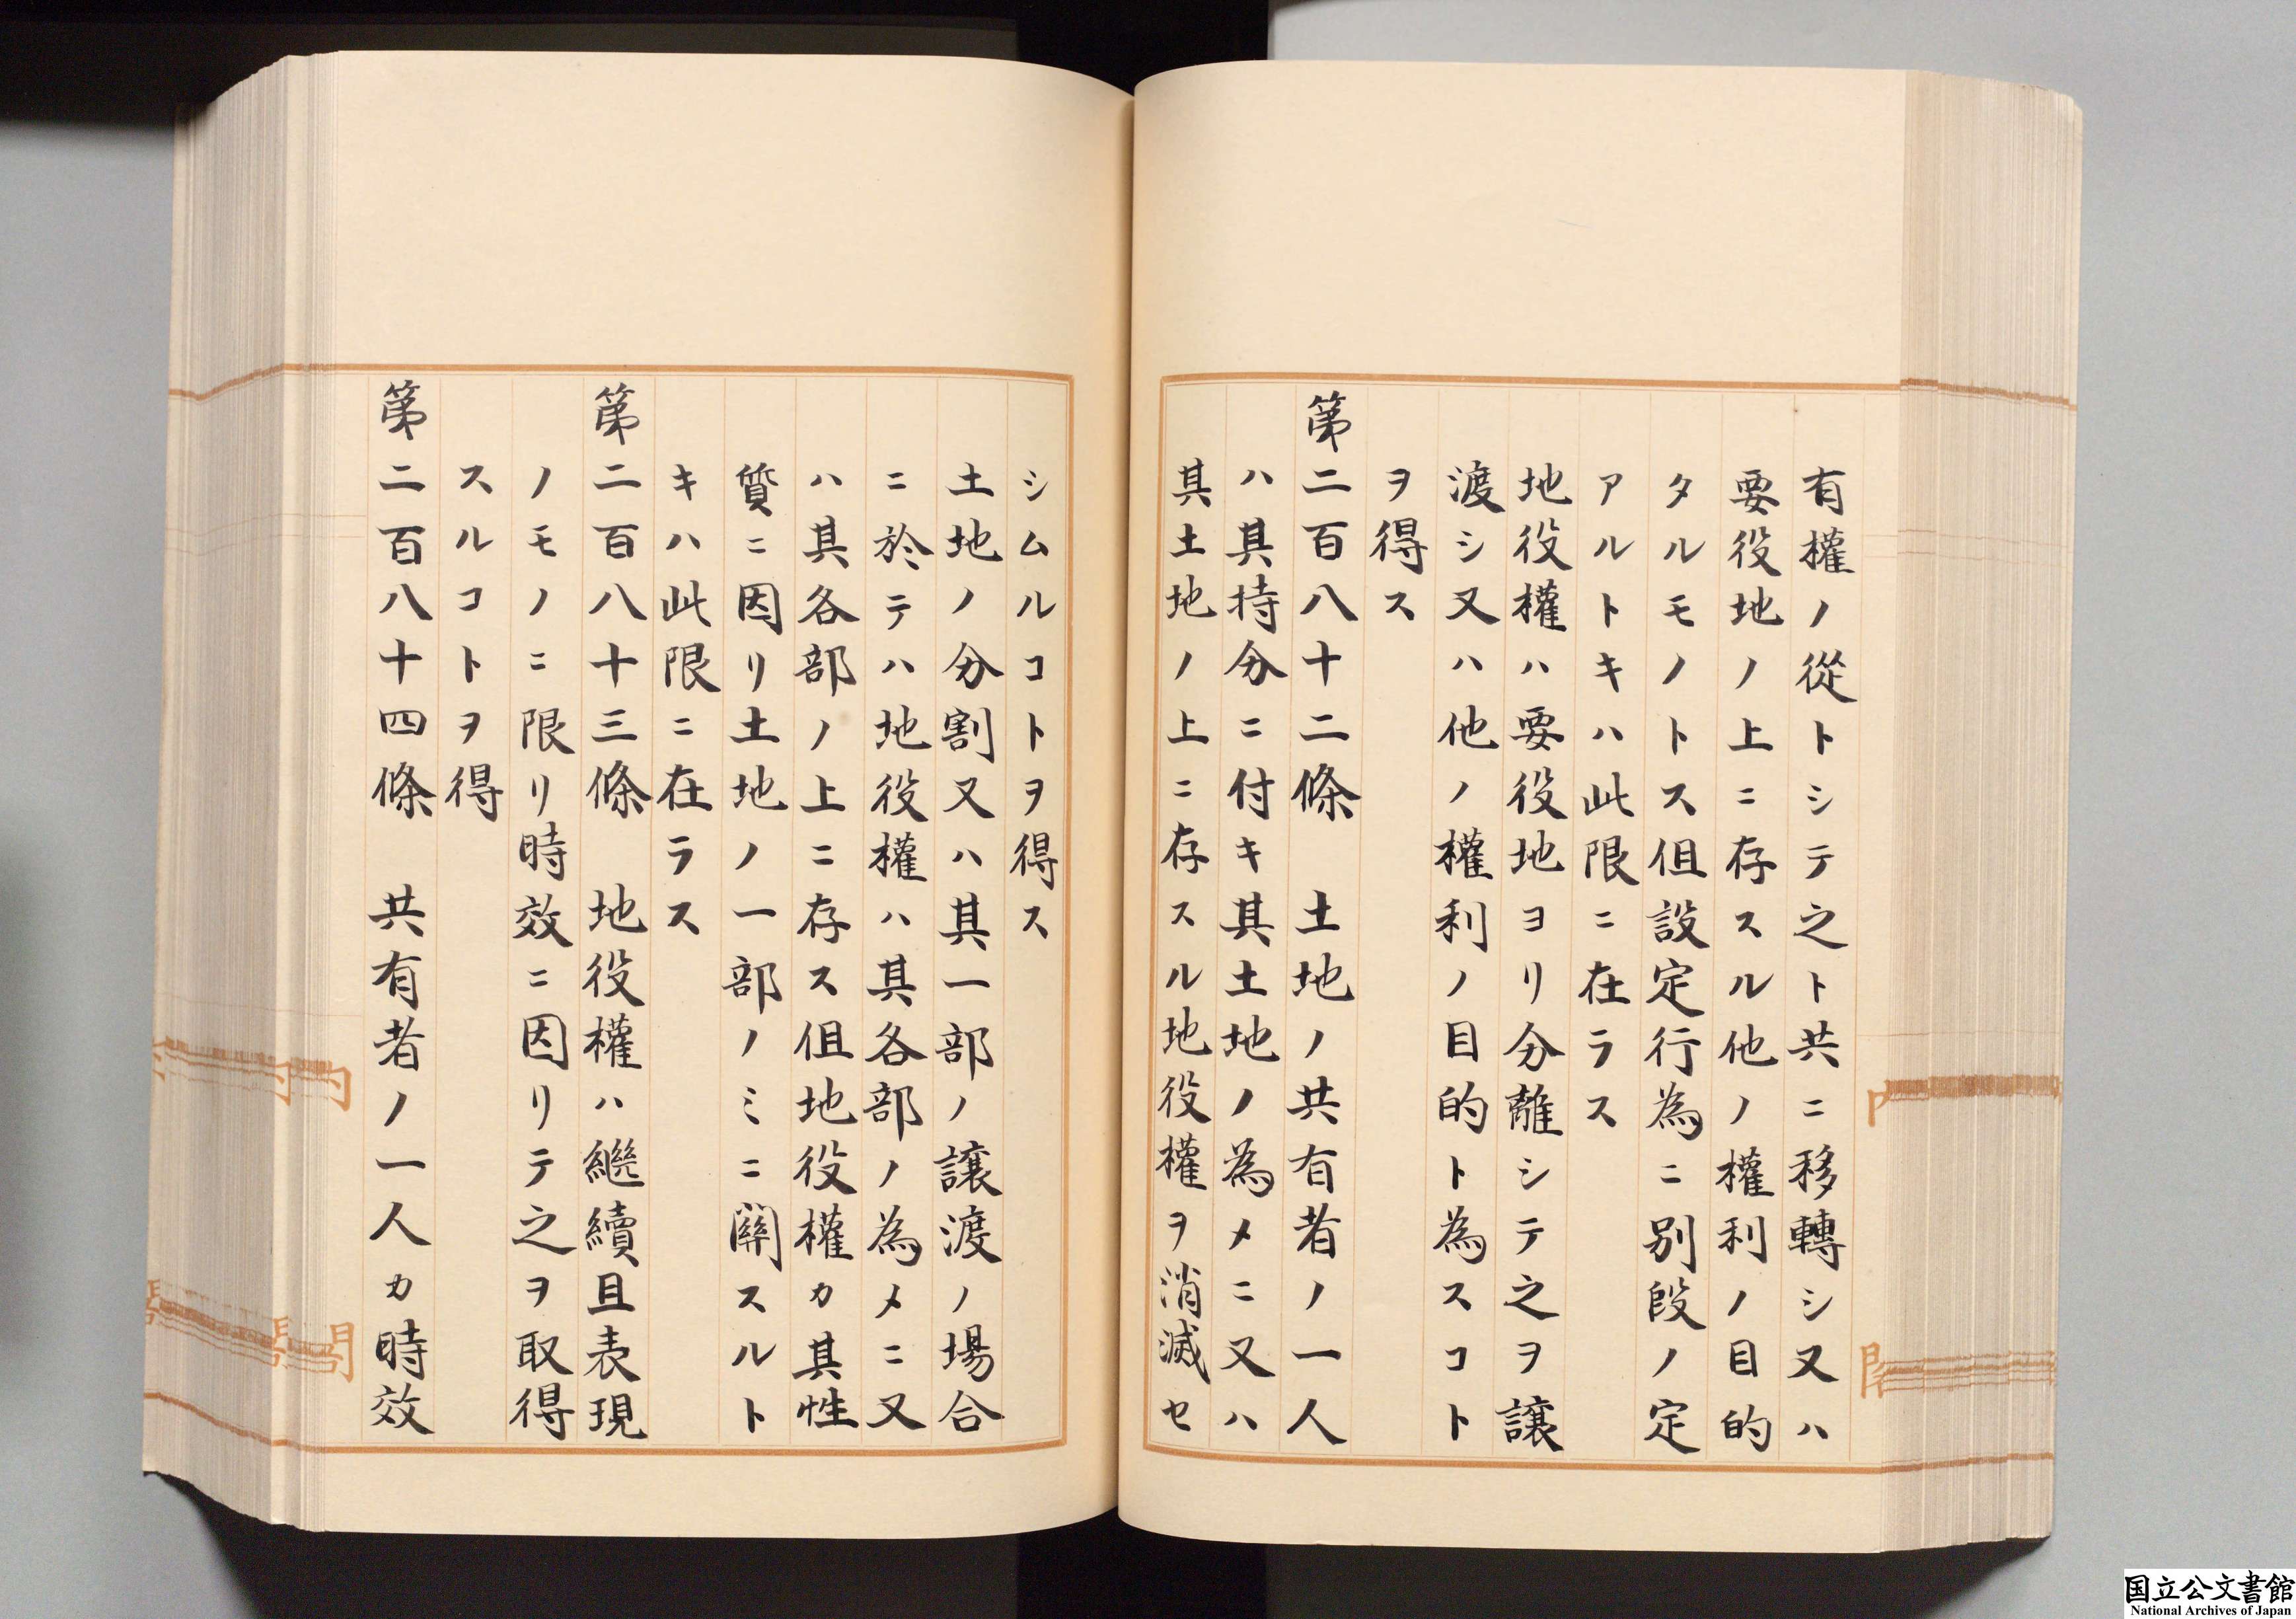 有權ノ從トシテ之ト共ニ移轉シ又ハ
要役地ノ上ニ存スル他ノ權利ノ目的
タルモノトス但設定行為ニ別段ノ定
アルトキハ此限ニ在ラス
地役權ハ要役地ヨリ分離シテ之ヲ讓
渡シ又ハ他ノ權利ノ目的ト為スコト
ヲ得ス
第二百八十二條　土地ノ共有者ノ一人
ハ其持分ニ付キ其土地ノ為メニ又ハ
其土地ノ上ニ存スル地役權ヲ消滅セ
シムルコトヲ得ス
土地ノ分割又ハ其一部ノ讓渡ノ場合
ニ於テハ地役權ハ其各部ノ為メニ又
ハ其各部ノ上ニ存ス但地役權カ其性
質ニ因リ土地ノ一部ノミニ關スルト
キハ此限ニ在ラス
第二百八十三條　地役權ハ繼續且表現
ノモノニ限リ時效ニ因リテ之ヲ取得
スルコトヲ得
第二百八十四條　共有者ノ一人カ時效
国立公文書館
National Archives of Japan